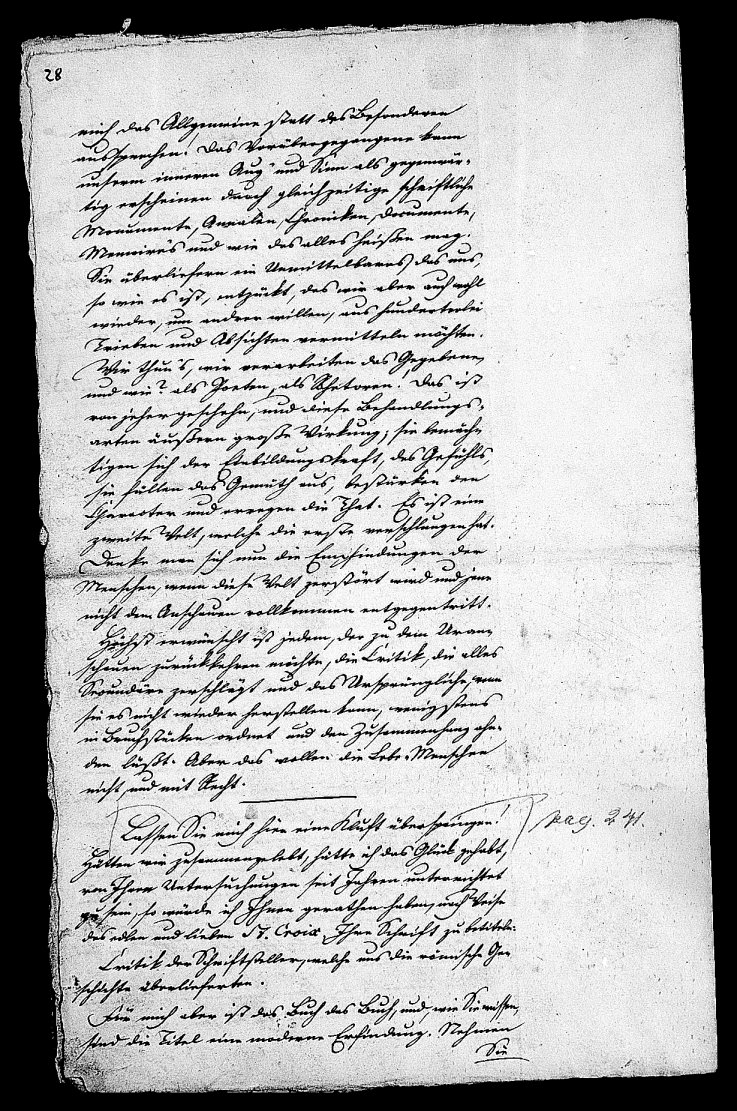 28
mich das Allgemeine statt des Besonderen
aussprechen! Das Vorübergegangene kann
unserm inneren Aug' und Sinn als gegenwär-
tig erscheinen durch gleichzeitige schriftliche
Monumente, Annalen, Chroniken, Documente,
Memoire's und wie das alles heißen mag.
Sie überliefern ein Unmittelbares, das uns,
so wie es ist, entzückt, das wir aber auch wohl
wieder, um andrer willen, aus hunderterlei
Trieben und Absichten vermitteln möchten.
Wir thun's, wir verarbeiten das Gegebene,
und wie? als Poeten, als Rhetoren! Das ist
von jeher geschehn, und diese Behandlungs-
arten äußern große Wirkung; sie bemäch-
tigen sich der Einbildungskraft, des Gefühls,
sie füllen das Gemüth aus, bestärken den
Character und erregen die That. Es ist eine
zweite Welt, welche die erste verschlungen hat.
Denke man sich nun die Empfindungen der
Menschen, wenn diese Welt zerstört wird und jene
nicht dem Anschauen vollkommen entgegentritt.
Höchst erwünscht ist jedem, der zu dem Uran-
schauen zurückkehren möchte, die Critik, die alles
Secundäre zerschlägt und das Ursprüngliche, wenn
sie es nicht wieder herstellen kann, wenigstens
in Bruchstücken ordnet und den Zusammenhang ahn-
den läßt. Aber das wollen die Lebe-Menschen
nicht, und mit Recht.
Lassen Sie mich hier eine Kluft überspringen! pag. 241.
Hätten wir zusammengelebt, hätte ich das Glück gehabt,
von Ihren Untersuchungen seit Jahren unterrichtet
zu sein, so würde ich Ihnen gerathen haben, nach Weise
des edlen und lieben St. Croix Ihre Schrift zu betiteln:
Critik der Schriftsteller, welche uns die römische Ge-
schichte überlieferten.
Für mich aber ist das Buch das Buch, und, wie Sie wissen,
sind die Titel eine moderne Erfindung. Nehmen
Sie